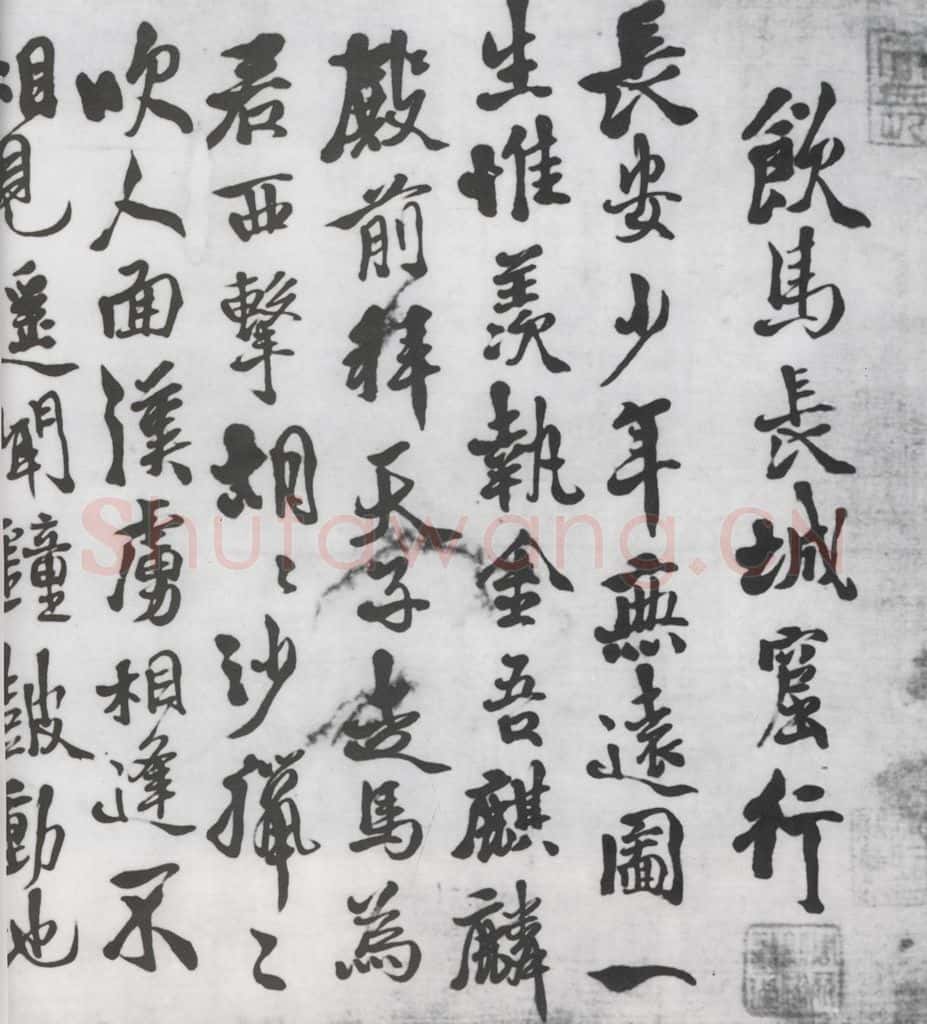 飲馬長城窟行
長安少年無遠圖一
生惟羨執金吾麒麟
殿前拜天子走馬為
君西擊胡〻沙獵〻
吹人面漢虜相逢不
相見遥聞鐘鼓動地
Shufawang.CN